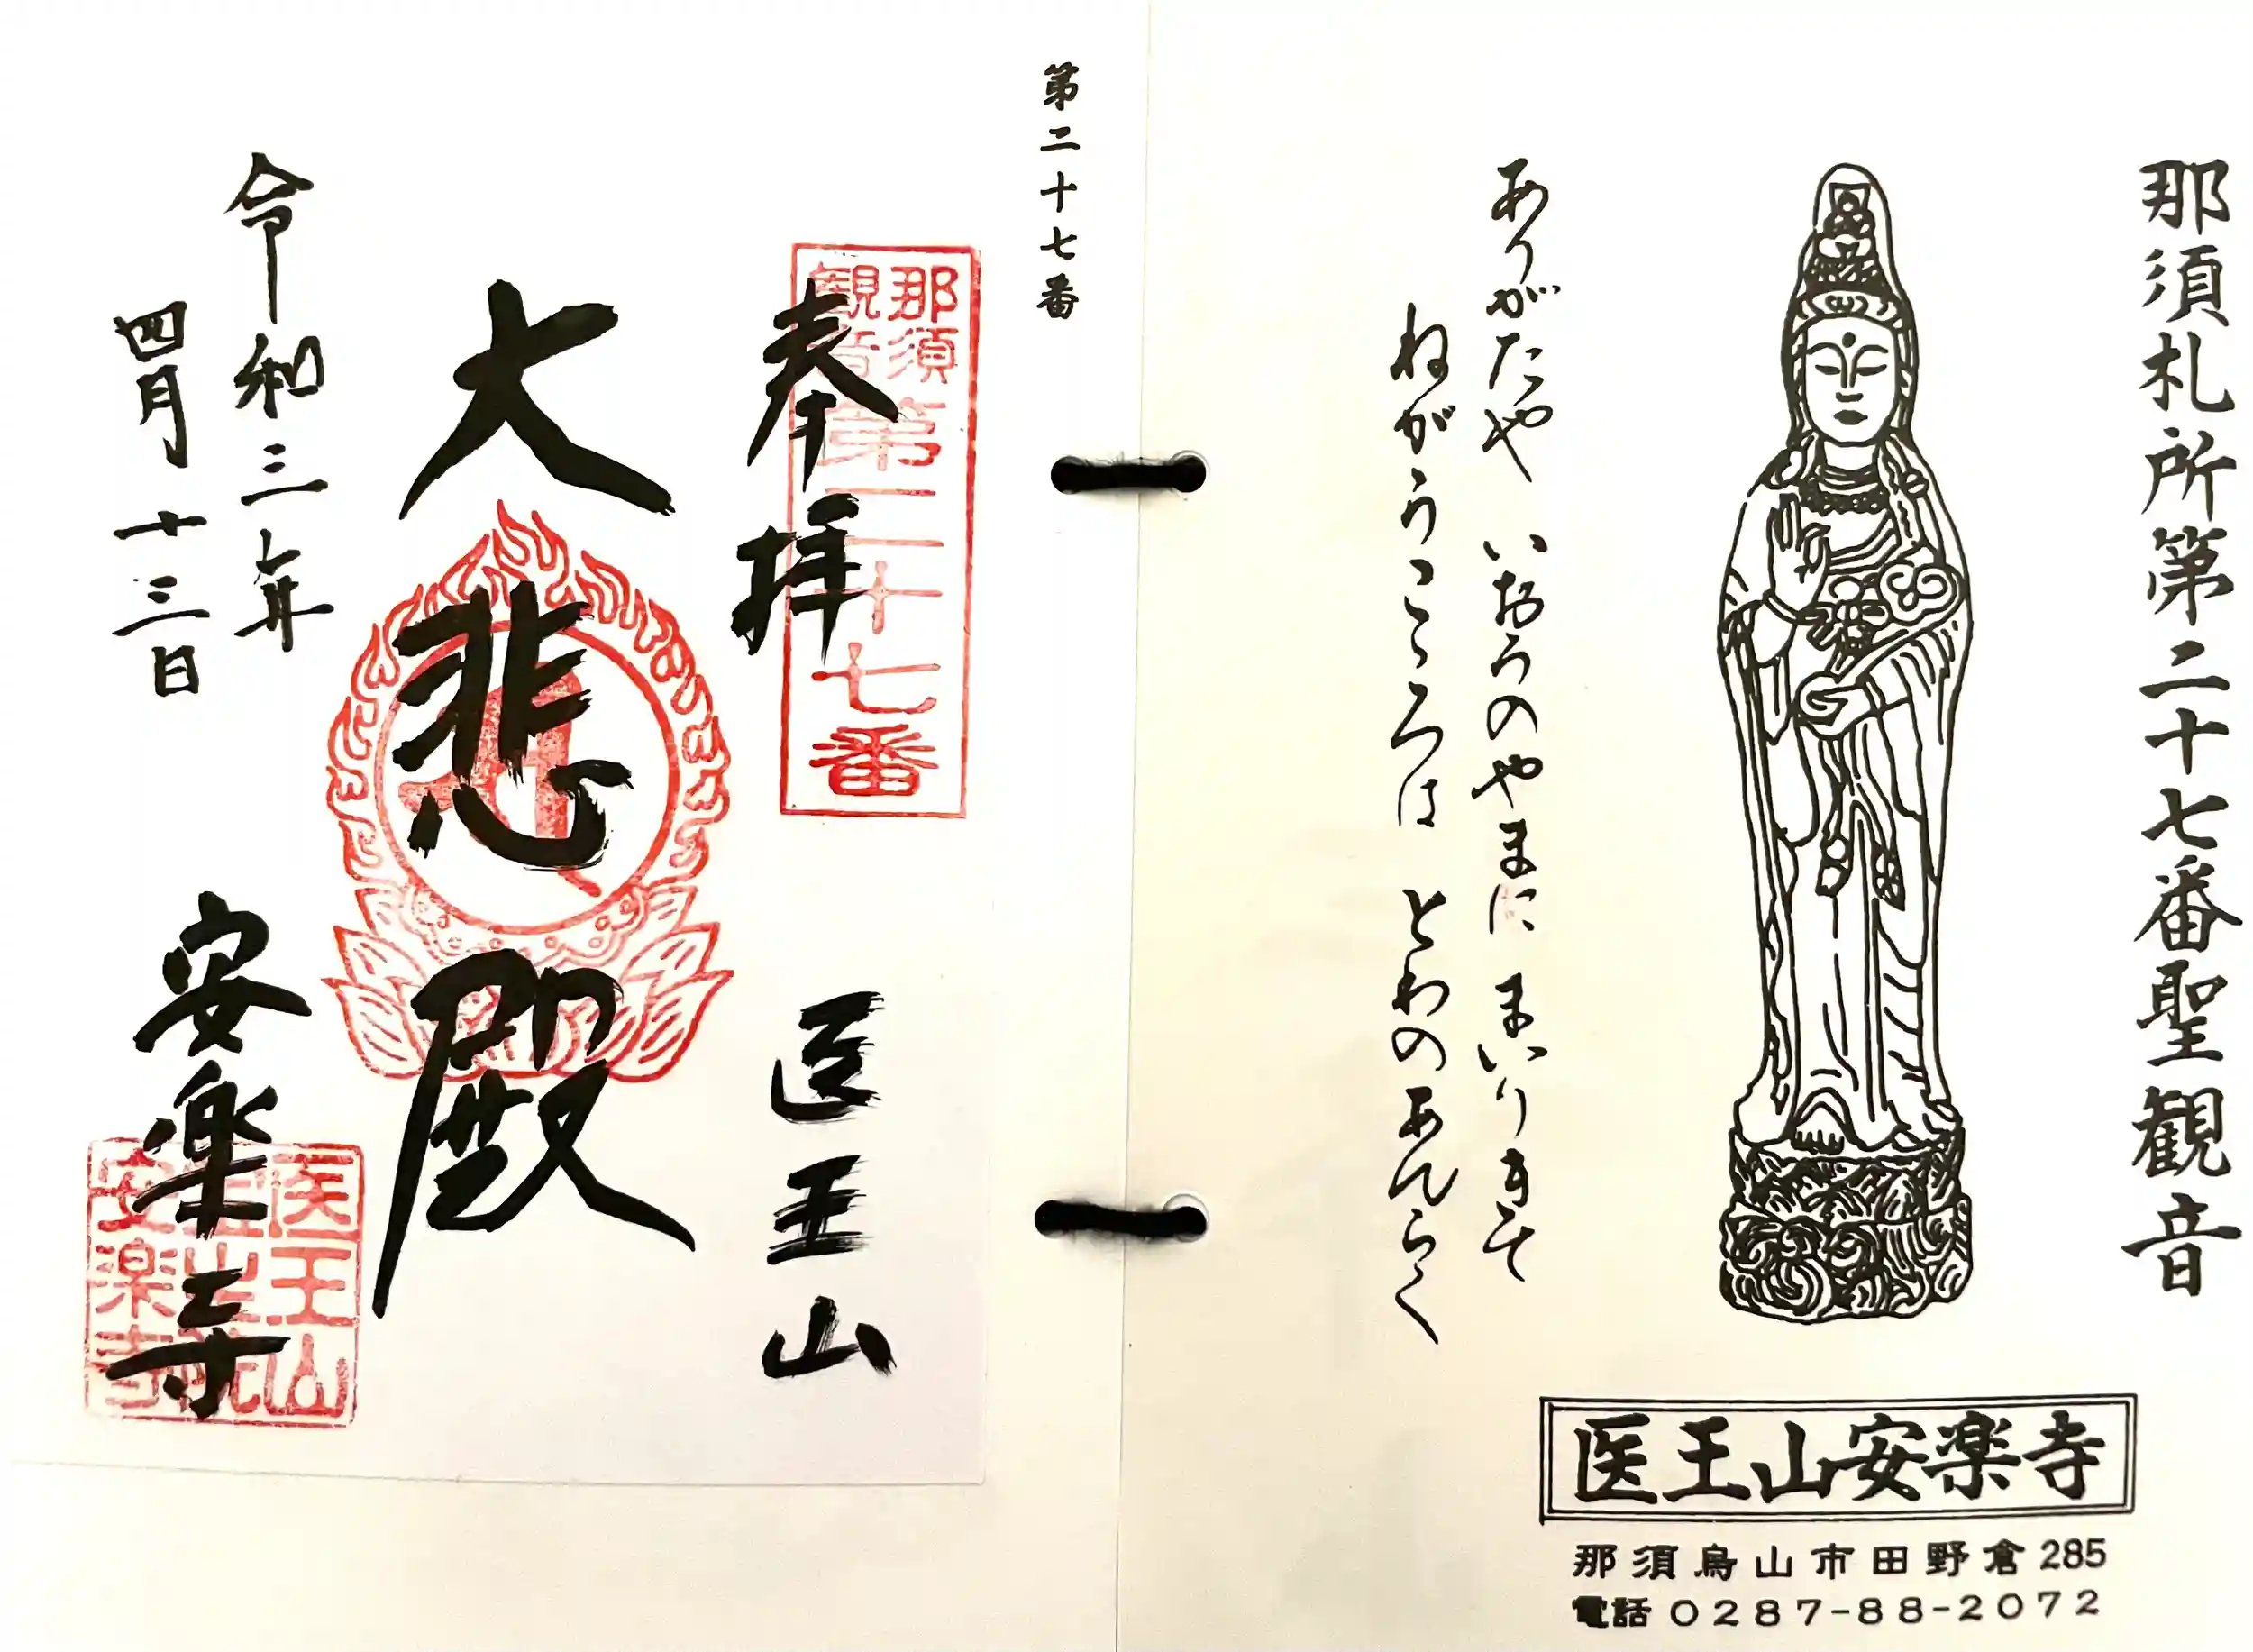 那須札所第二十七番聖観音
ありがたや いおうのやまに まいりきて
ねがうこころは とわのあんらく
医王山安楽寺
那須烏山市田野倉285
電話0287-88-2072
第二十七番
那須
観音
第二十七番
奉拝
医王山
大悲殿
令和三年
四月十三日
安楽寺
医王山
安楽寺